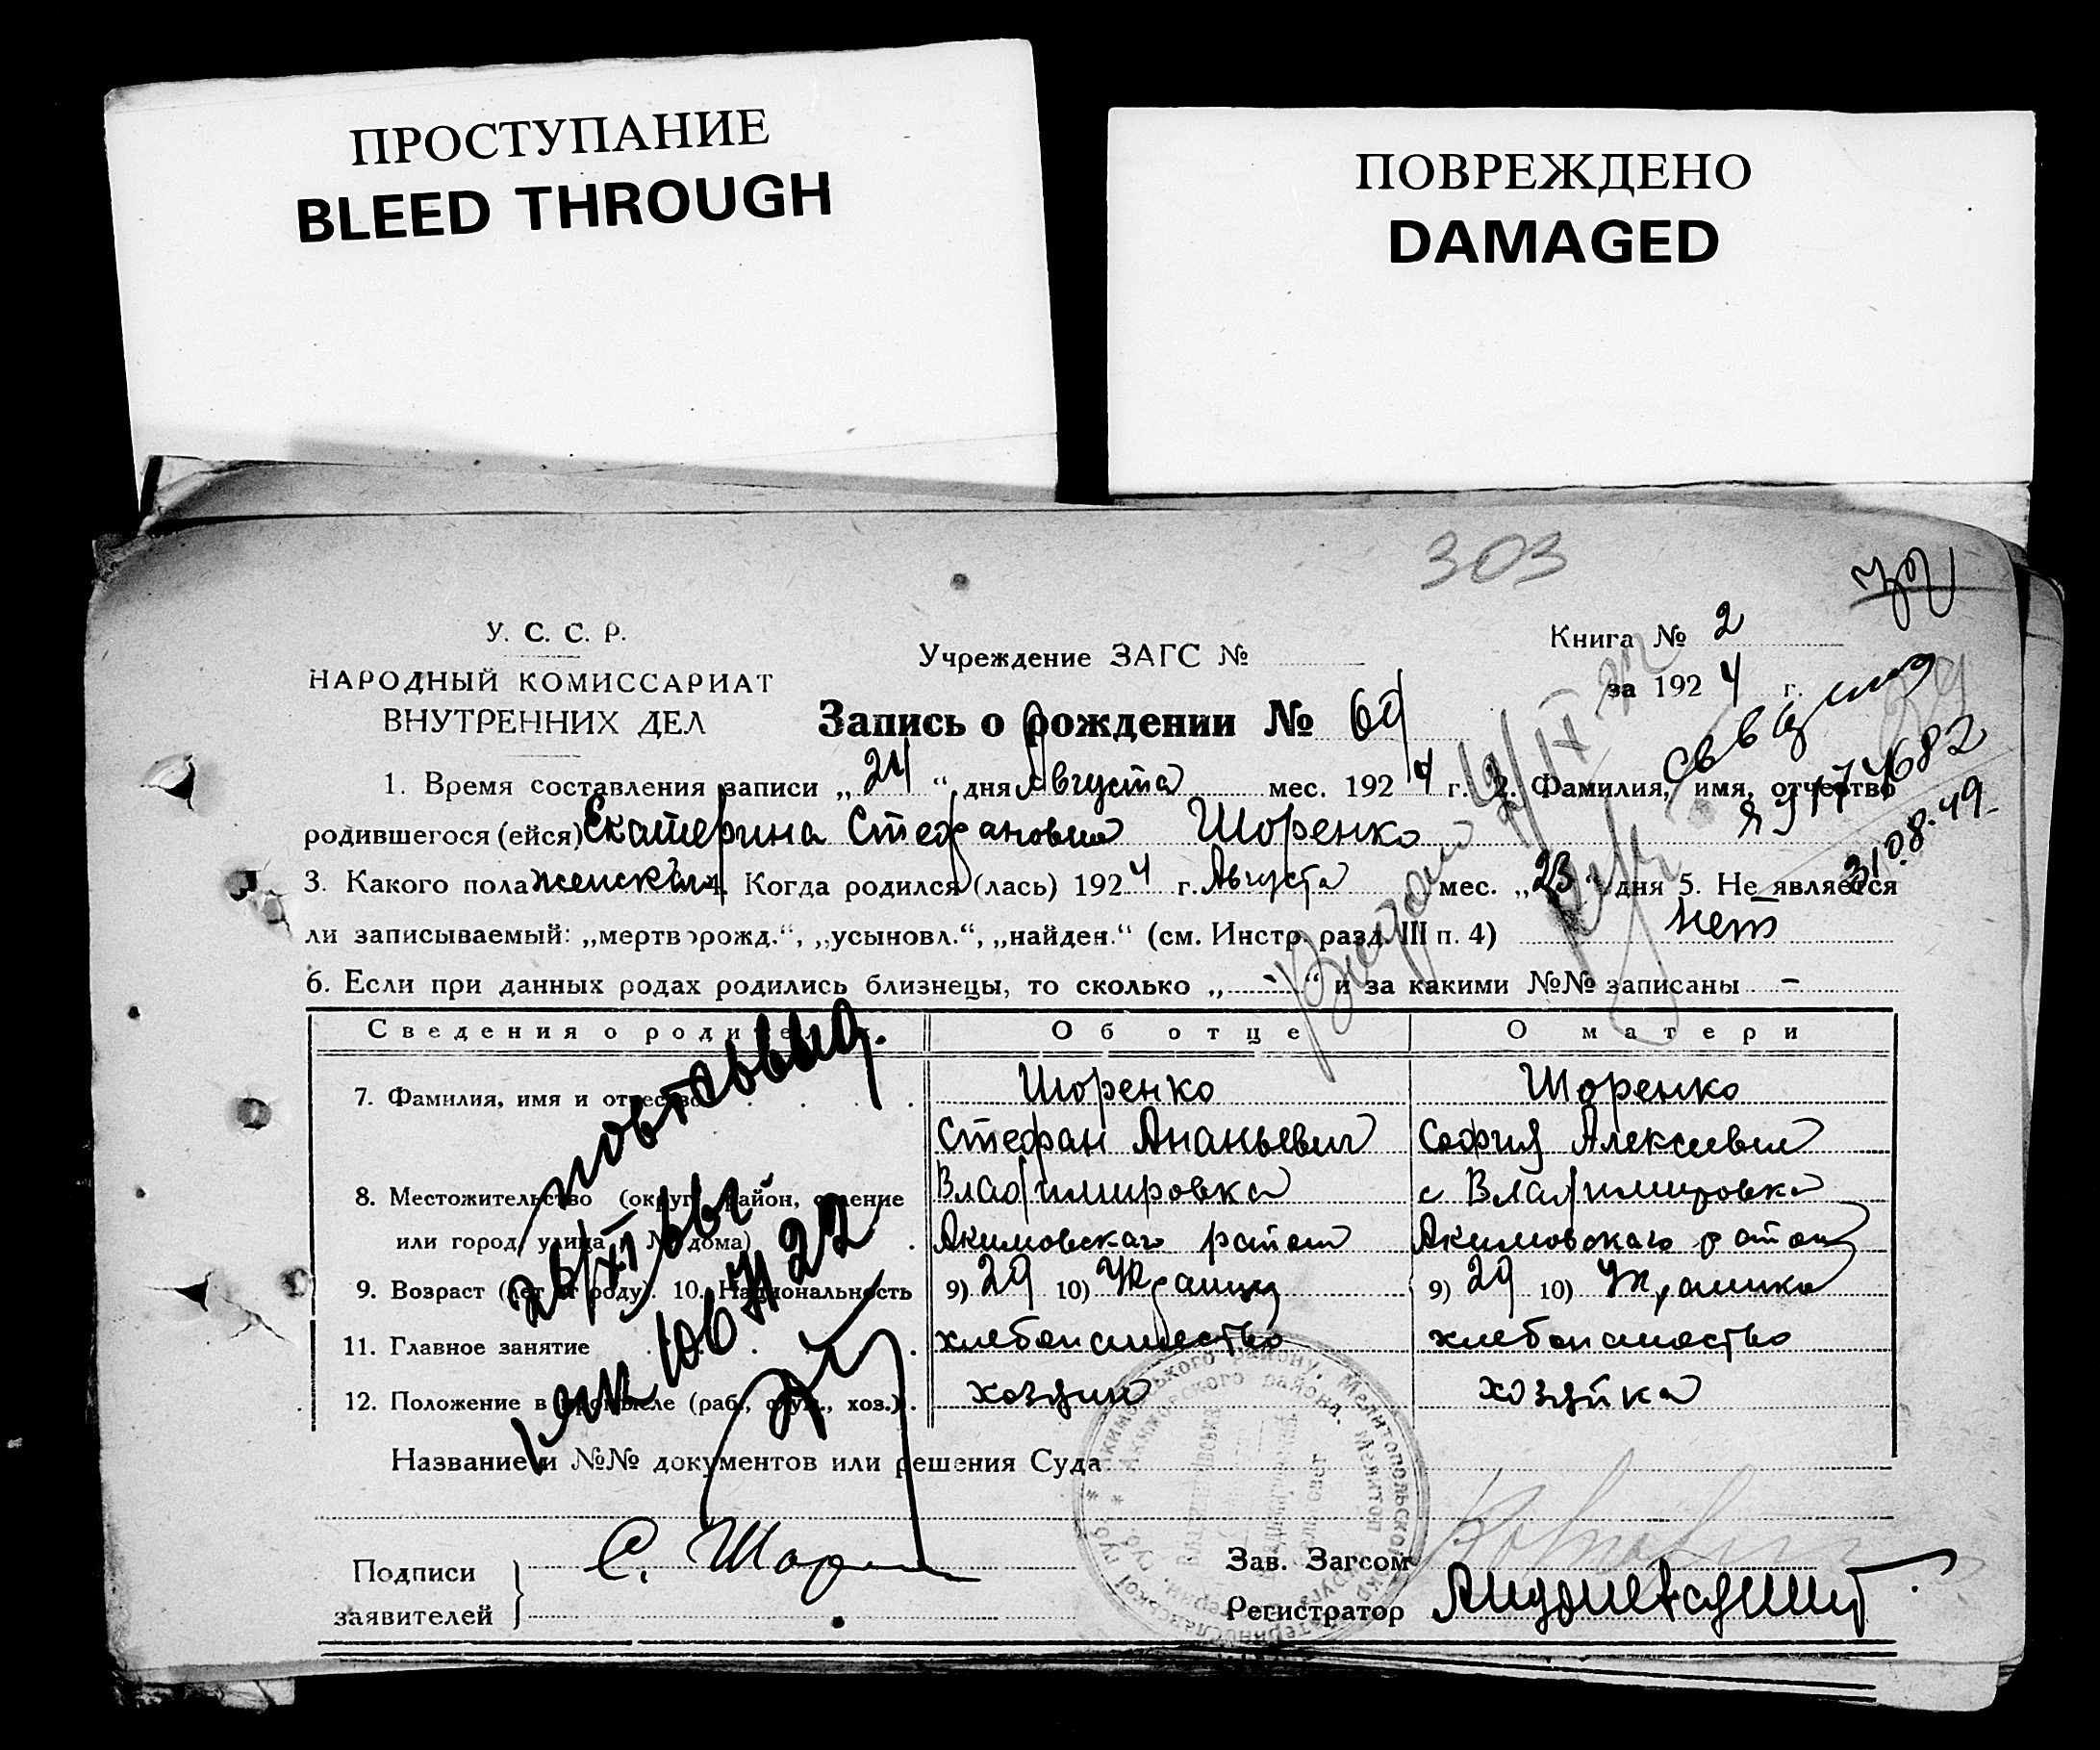 ПРОСТУПАНИЕ
BLEED THROUGH
ПОВРЕЖДЕНО
DAMAGED
303
У. С. С. Р.
НАРОДНЫЙ КОМИССАРИАТ
ВНУТРЕННИХ ДЕЛ
Учреждение ЗАГС №
Книга № 2
за 1924 г.
Запись о рождении № 69
1. Время составления записи „24“ дня Августа мес. 1924 г. 2. Фамилия, имя, отчество
родившегося (ейся) Екатерина Стефановна Шоренко
3. Какого пола женскаго 4. Когда родился (лась) 1924 г. Августа мес. „23“ дня 5. Не является
ли записываемый: „мертворожд.“, „усыновл.“, „найден.“ (см. Инстр. разд. III п. 4) нет
6. Если при данных родах родились близнецы, то сколько „-“ и за какими №№ записаны -
31.08.49
Сведения о родителях. Об отце О матери
7. Фамилия, имя и отчество Шоренко Шоренко
Стефан Ананьевич София Алексеевна
8. Местожительство (округ, район, селение Владимировка с Владимировка
или город, улица и № дома) Акимовскаго район Акимовскаго район
9. Возраст (лет от роду). 10. Национальность 9) 29 10) Украинец 9) 29 10) Украинка
11. Главное занятие хлебопашество хлебопашество
12. Положение в промысле (раб., служ., хоз.) хозяин хозяйка
повт. выд.
Название и №№ документов или решения Суда
Подписи
заявителей
С. Шорен
Зав. Загсом
Регистратор